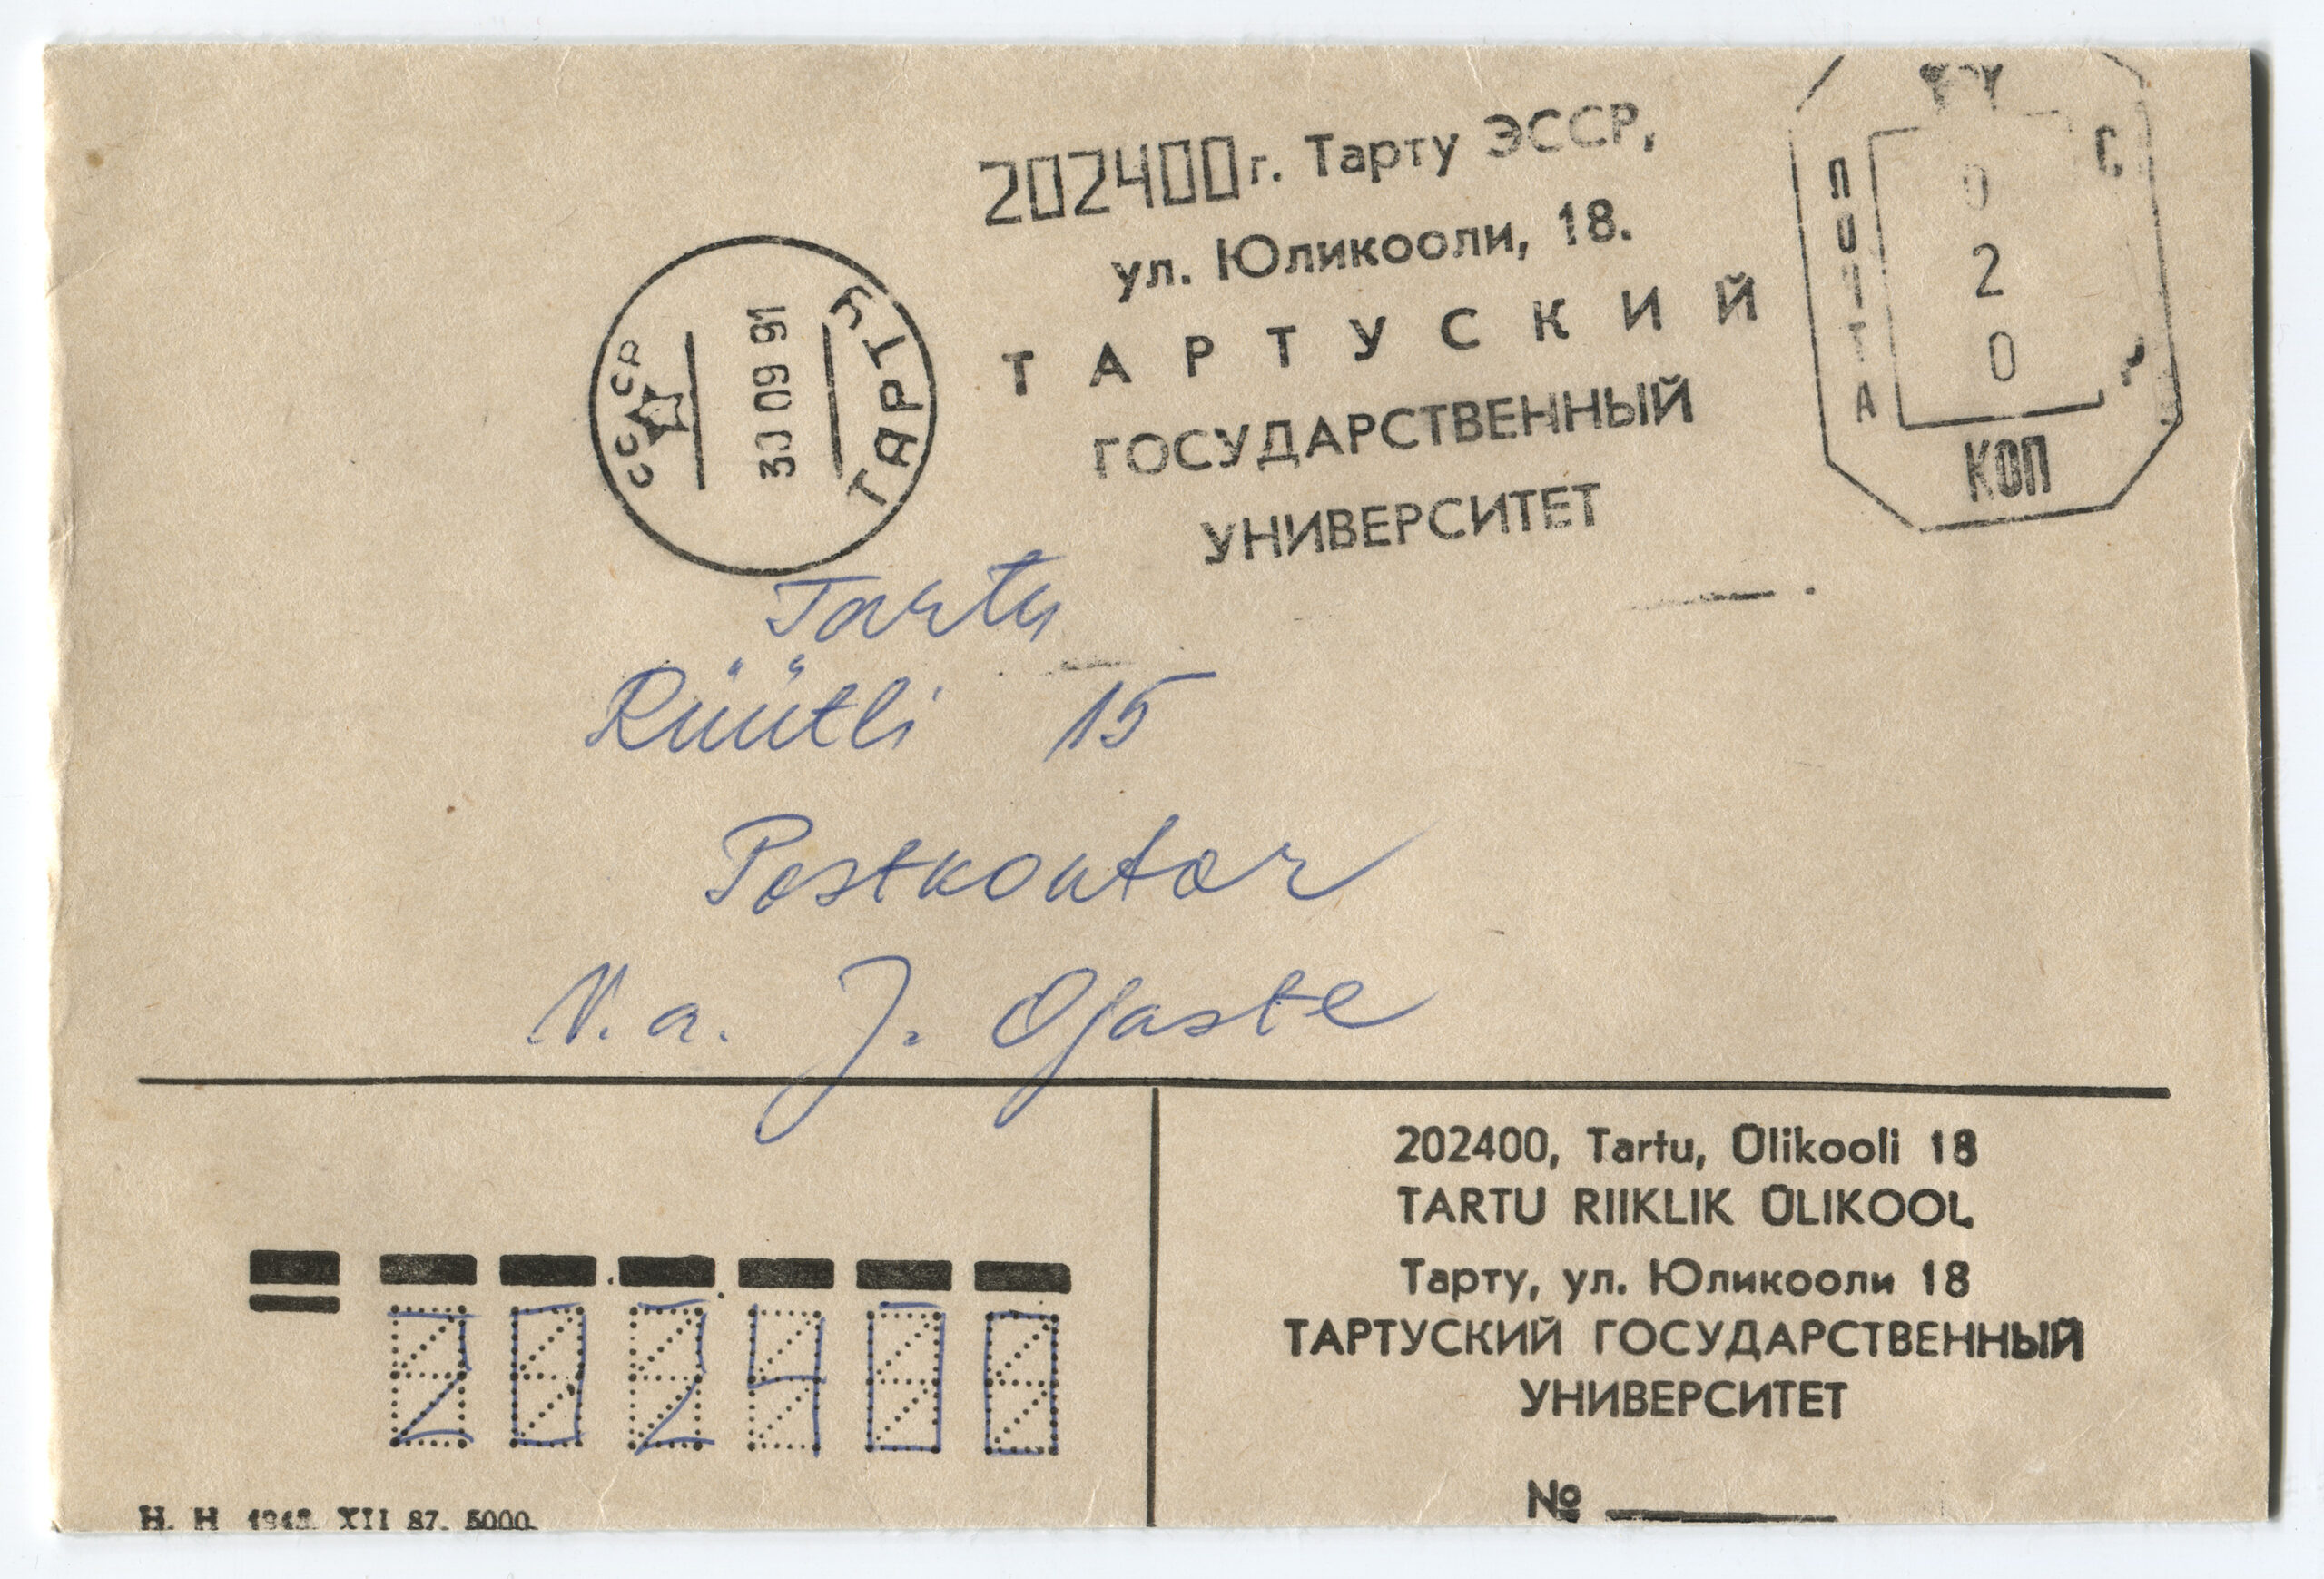 202400 г. Тарту ЭССР,
ул. Юликооли, 18.
ТАРТУСКИЙ
ГОСУДАРСТВЕННЫЙ
УНИВЕРСИТЕТ
ПОЧТА
020
КОП
СССР
30 09 91
ТАРТУ
Tartu
Rüütli 15
Postkontor
V.a. J. Ojaste
202400
202400, Tartu, Ülikooli 18
TARTU RIIKLIK ÜLIKOOL
Тарту, ул. Юликооли 18
ТАРТУСКИЙ ГОСУДАРСТВЕННЫЙ
УНИВЕРСИТЕТ
№
XII 87. 5000.